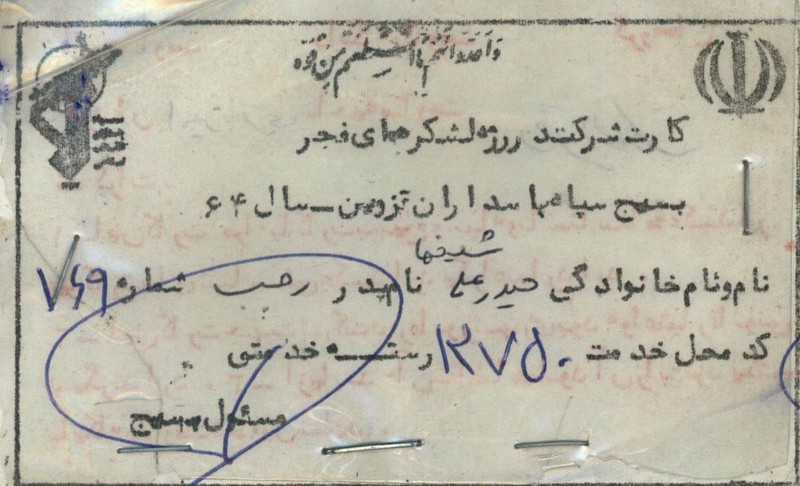 وَأَعِدُّوا لَهُمْ مَا اسْتَطَعْتُمْ مِنْ قُوَّةٍ
کارت شرکت در رزم لشکرهای فجر
بسیج سپاه پاسداران قزوین - سال ۶۴
شفیعیها
نام و نام خانوادگی حیدرعلی نام پدر رجب شماره ۷۶۹
کد محل خدمت ۳۷۵۰ رسته خدمتی
مسئول بسیج